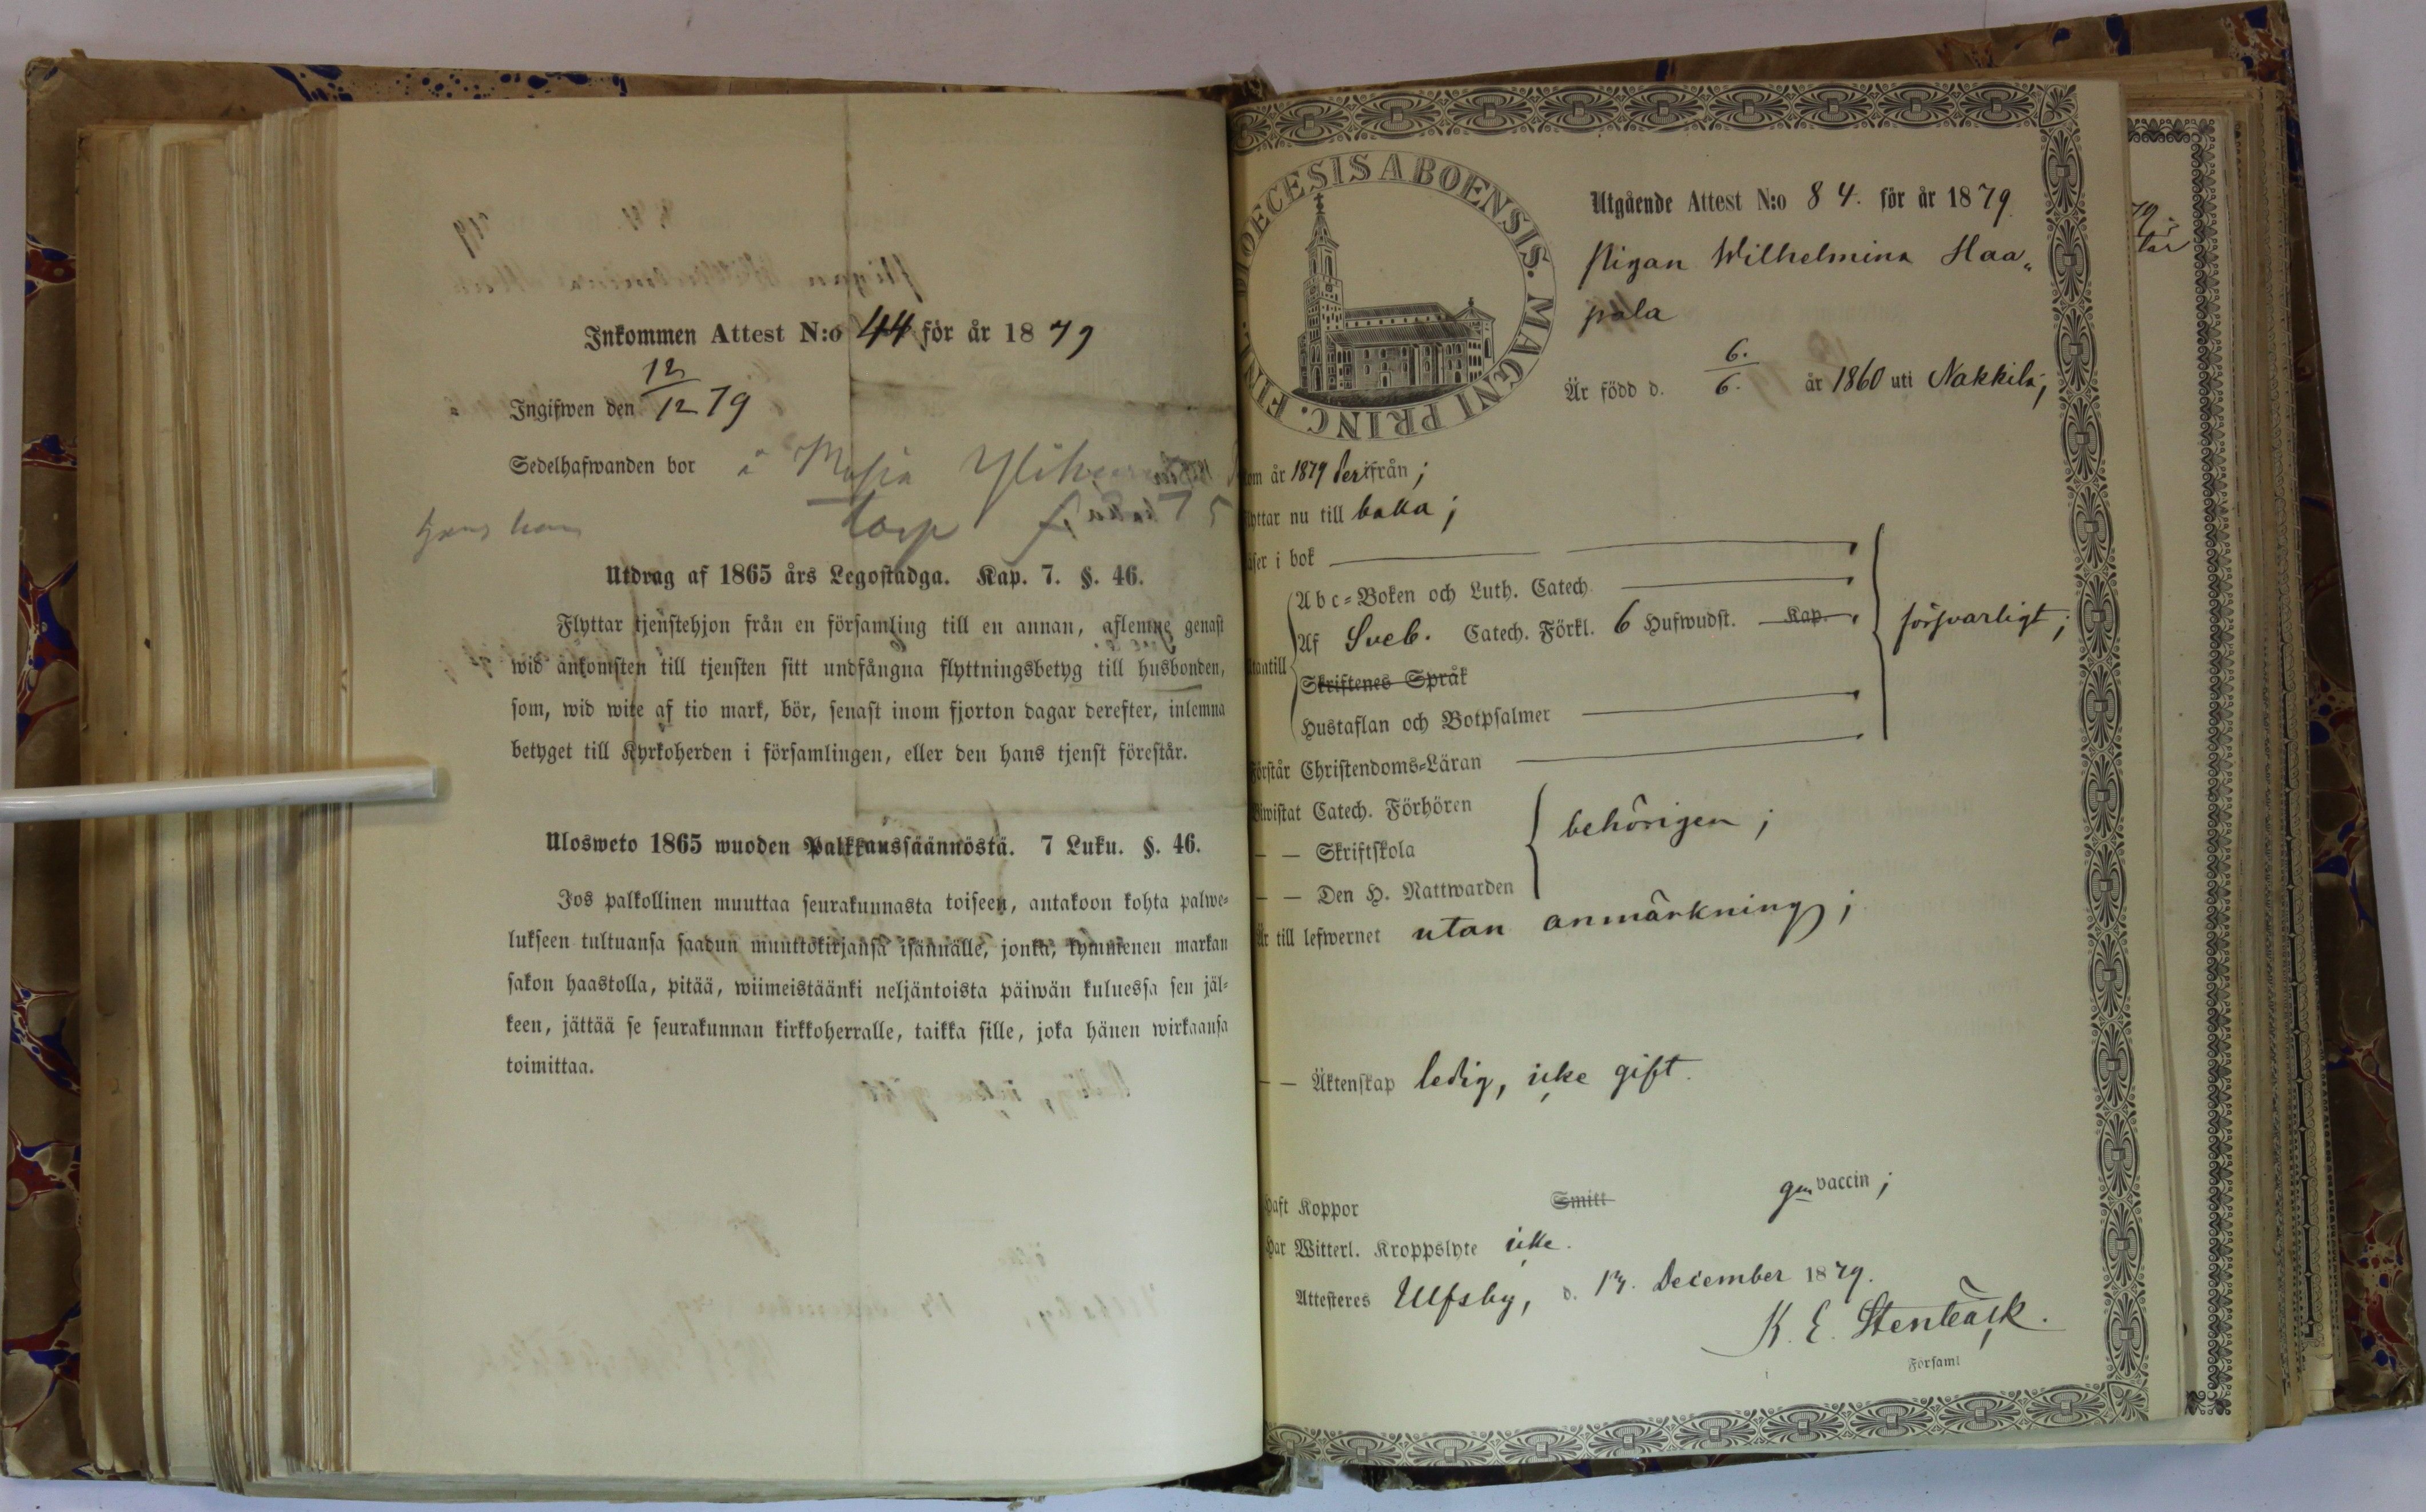 Inkommen Attest N:o 44 för år 1879
Ingifwen den 12/12 79
Sedelhafwanden bor i
torp
Utdrag af 1865 års Legostadga. Kap. 7. §. 46.
Flyttar tjenstehjon från en församling till en annan, aflemne genast
wid ankomsten till tjensten sitt undfångna flyttningsbetyg till husbonden,
som, wid wite af tio mark, bör, senast inom fjorton dagar derefter, inlemna
betyget till Kyrkoherden i församlingen, eller den hans tjenst förestår.
Ulosweto 1865 wuoden Palkkaussäännöstä. 7 Luku. §. 46.
Jos palkollinen muuttaa seurakunnasta toiseen, antakoon kohta palwe-
lukseen tultuansa saadun muuttokirjansa isännälle, jonka, kymmenen markan
sakon haastolla, pitää, wiimeistäänki neljäntoista päiwän kuluessa sen jäl-
keen, jättää se seurakunnan kirkkoherralle, taikka sille, joka hänen wirkaansa
toimittaa.
DIOECESIS ABOENSIS. MAGNI PRINC. FINL.
Utgående Attest N:o 84. för år 1879.
Pigan Wilhelmina Haa„
pala
Är född d. 6./6. år 1860 uti Nakkila;
om år 1879 derifrån;
lyttar nu till baka;
äser i bok
Abc-Boken och Luth. Catech.
Af Sveb. Catech. Förkl. 6 Hufwudst. Kap. försvarligt;
utantill
Skriftenes Språk
Hustaflan och Botpsalmer
Förstår Christendoms-Läran
Biwistat Catech. Förhören
— — Skriftskola behörigen;
— — Den H. Nattwarden
Är till lefwernet utan anmärkning;
— — Äktenskap ledig, icke gift.
Haft Koppor Smitt gm vaccin;
Har Witterl. Kroppslyte icke.
Attesteres Ulfsby, d. December 1879.
K. E. Stenbäck.
Församl